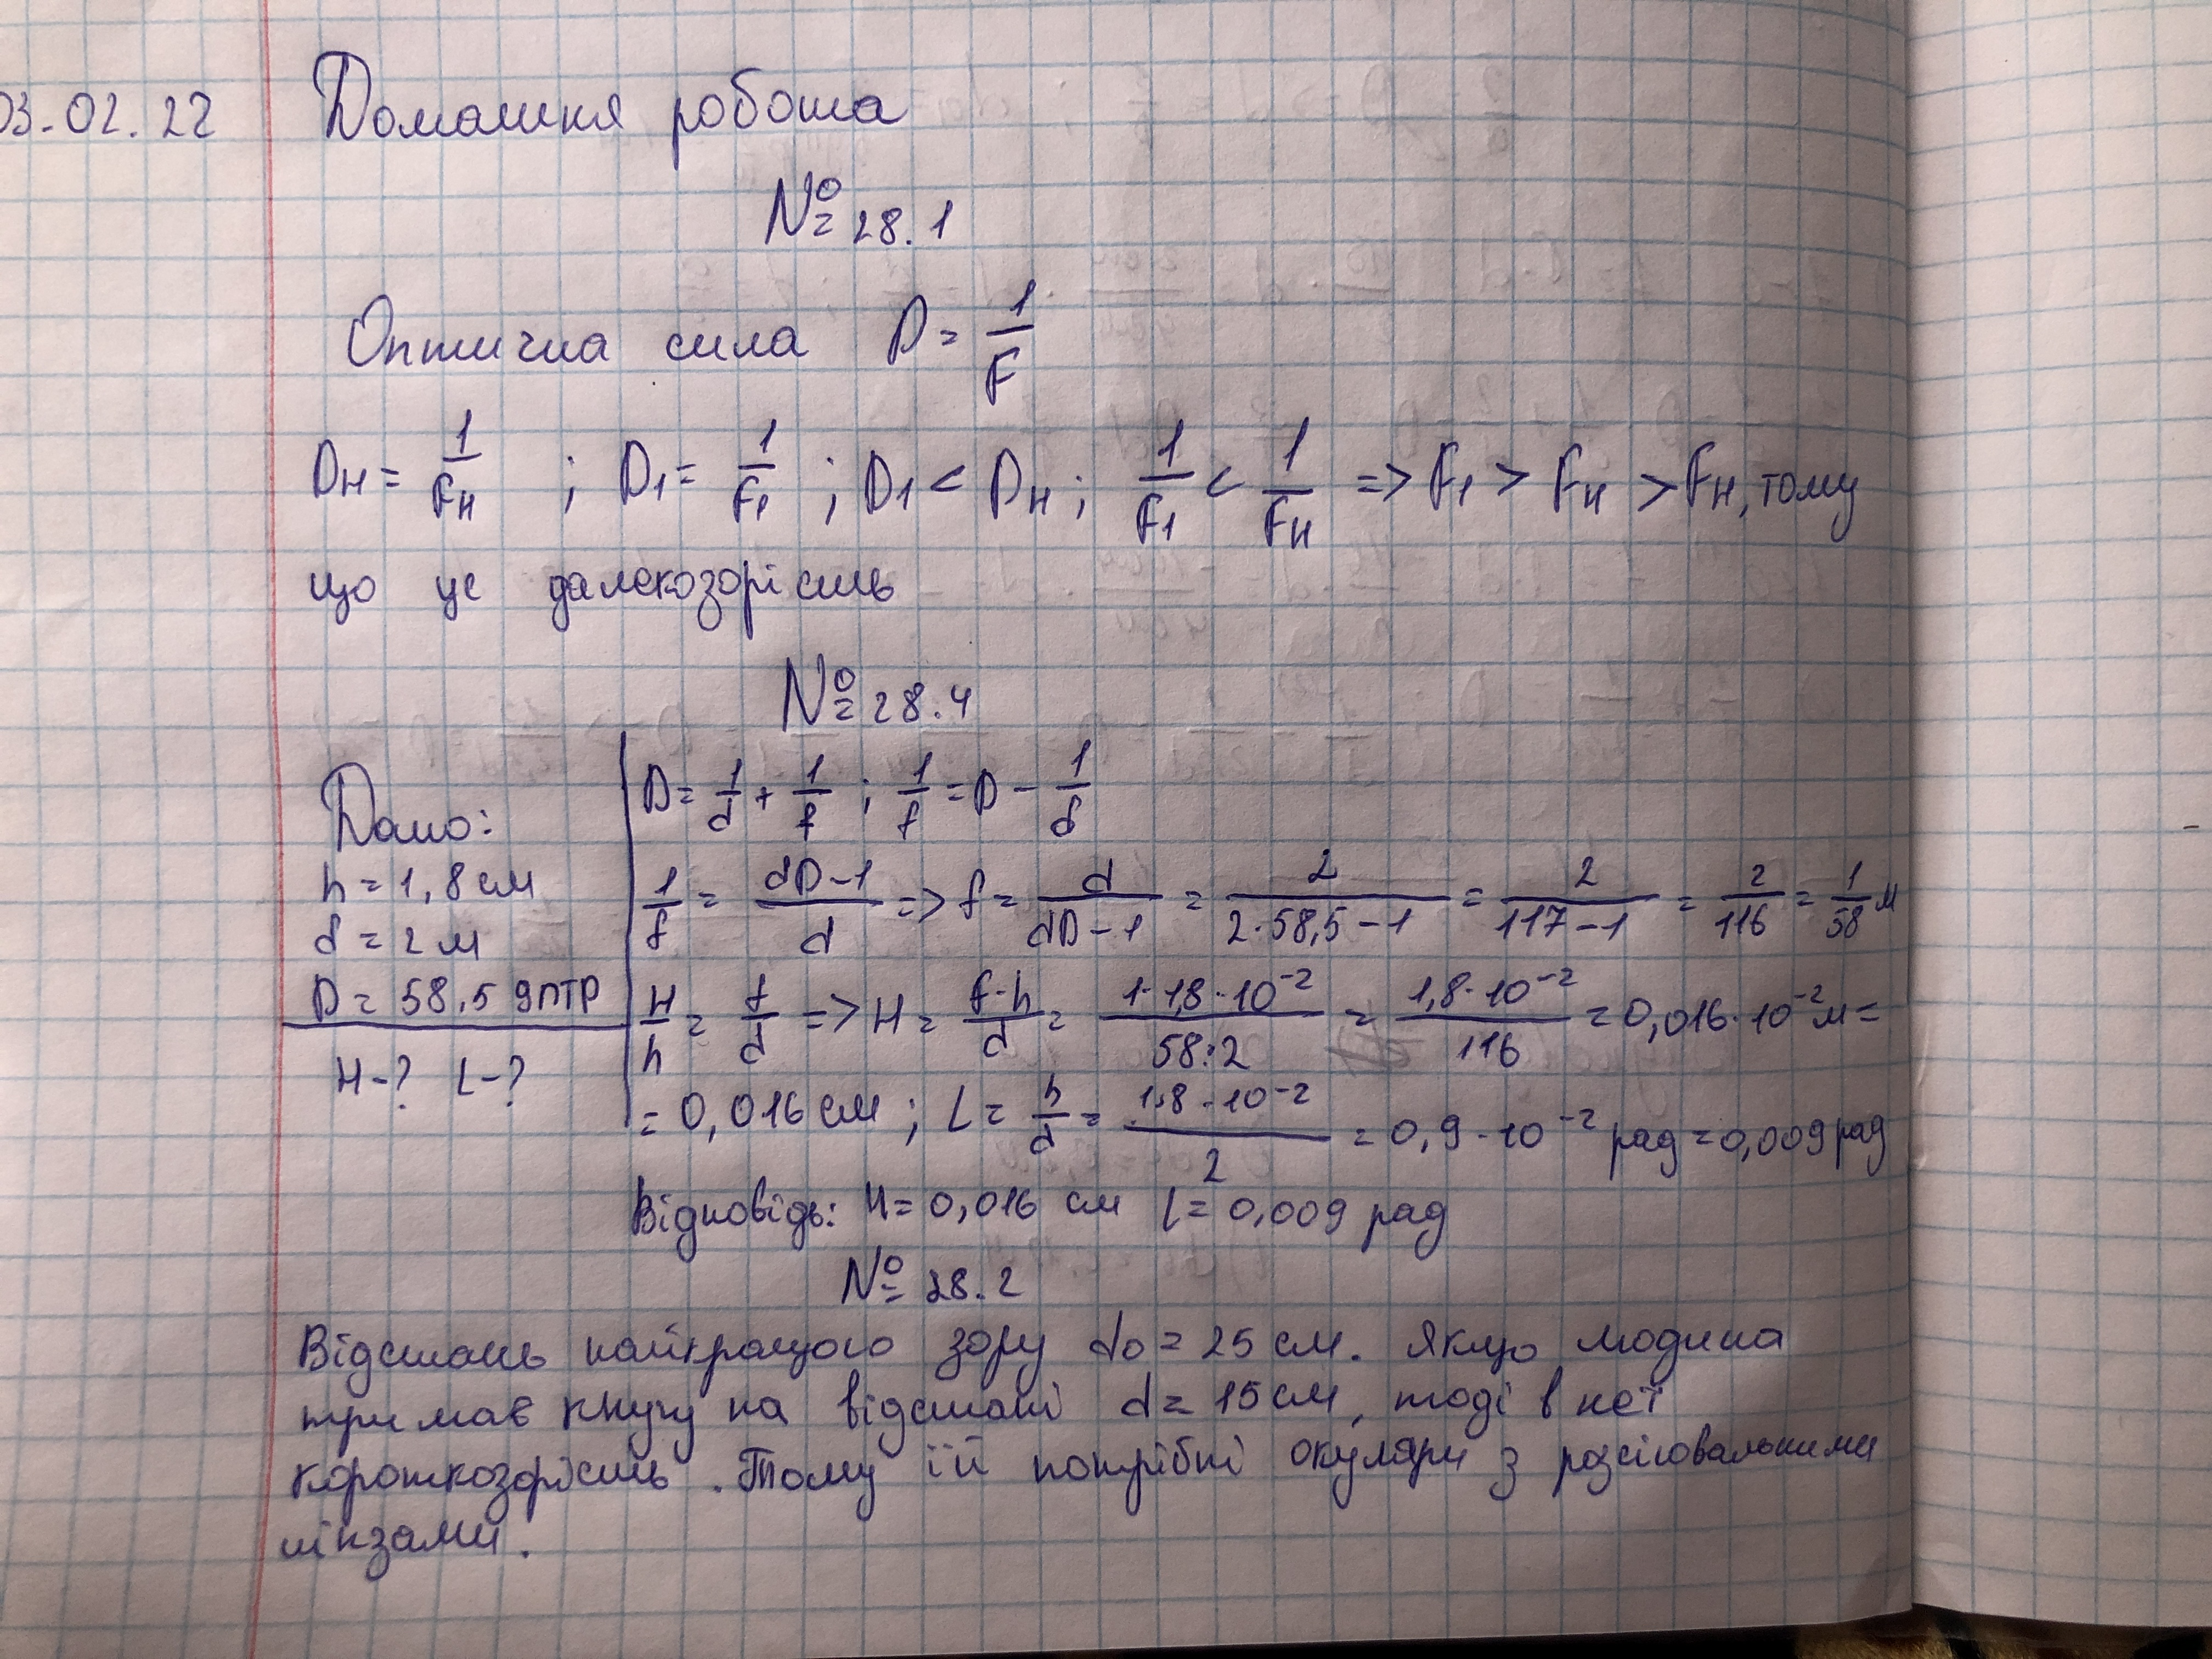 03.02.22 Домашня робота
№ 28.1
Оптична сила D = 1/F
Dн = 1/Fн ; D1 = 1/F1 ; D1 < Dн ; 1/F1 < 1/Fн => F1 > Fн > Fн, тому
що це далекозорість
№ 28.4
Дано:
h = 1,8 см
d = 2 м
D = 58,5 дптр
H-? L-?
D = 1/d + 1/f ; 1/f = D - 1/d
1/f = (dD-1)/d => f = d/(dD-1) = 2/(2·58,5-1) = 2/(117-1) = 2/116 = 1/58 м
H/h = f/d => H = (f·h)/d = (1·1,8·10⁻²)/(58·2) = (1,8·10⁻²)/116 = 0,016·10⁻² м =
= 0,016 см ; L = h/d = (1,8·10⁻²)/2 = 0,9·10⁻² рад = 0,009 рад
Відповідь: H = 0,016 см L = 0,009 рад
№ 28.2
Відстань найкращого зору d0 = 25 см. Якщо людина
тримає книгу на відстані d = 15 см, тоді в неї
короткозорість. Тому їй потрібні окуляри з розсіювальними
лінзами.